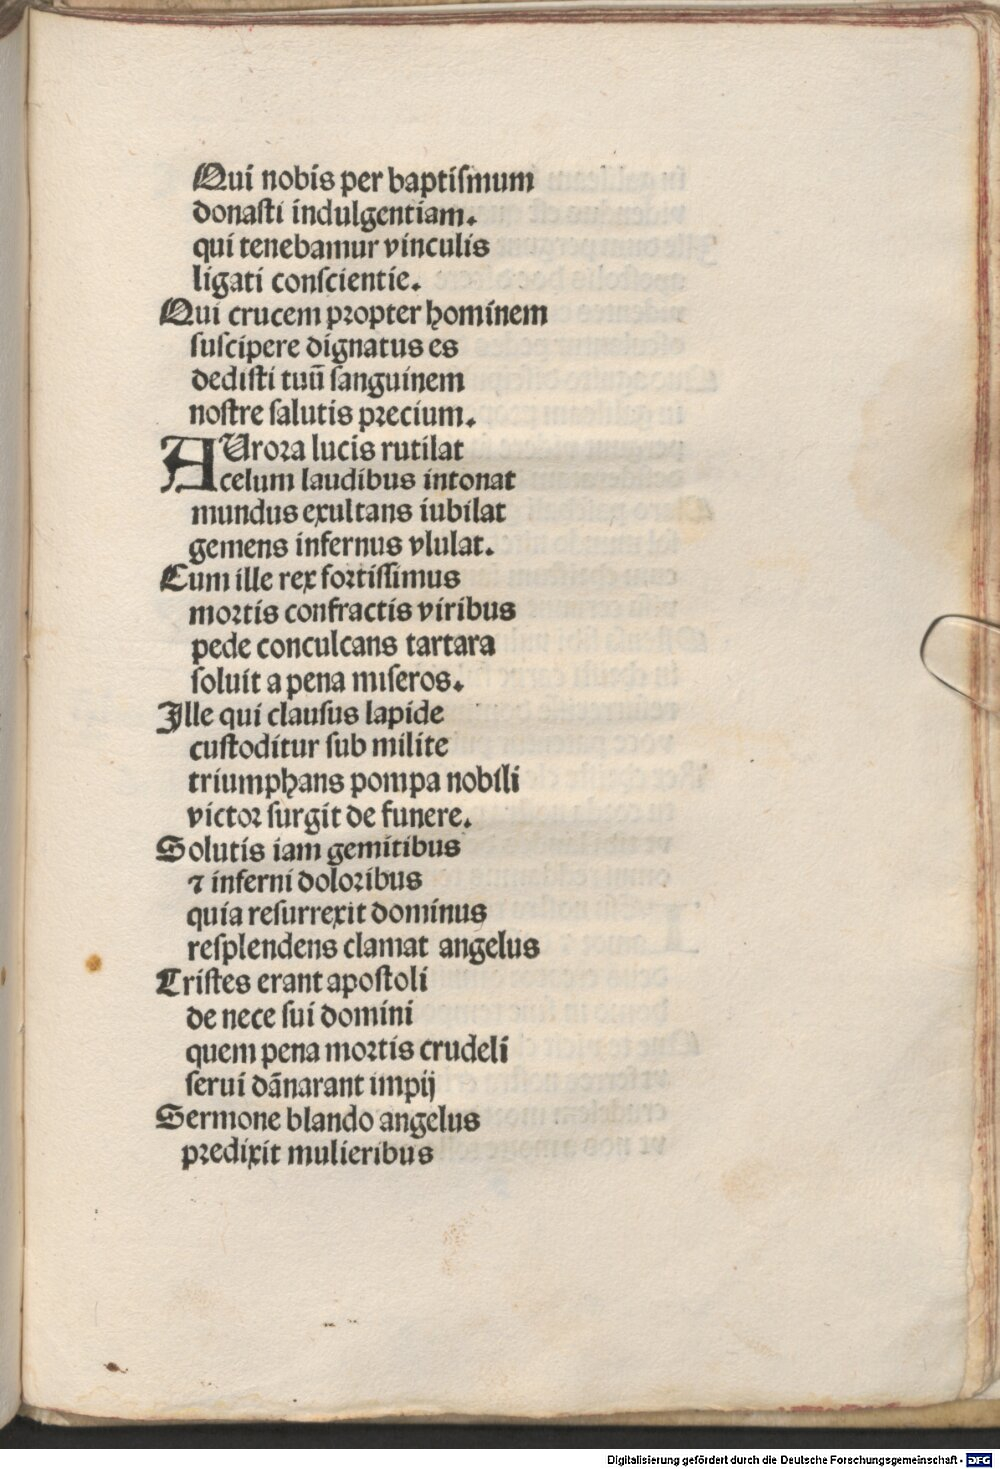 Qui nobis per baptiſmum
donaſti indulgentiam.
qui tenebamur vinculis
ligati conſcientie.
Qui crucem propter hominem
ſuſcipere dignatus es
dediſti tuū ſanguinem
noſtre ſalutis precium.
AUrora lucis rutilat
celum laudibus intonat
mundus exultans iubilat
gemens infernus vlulat.
Cum ille rex fortiſſimus
mortis confractis viribus
pede conculcans tartara
ſoluit a pena miſeros.
Ille qui clauſus lapide
cuſtoditur ſub milite
triumphans pompa nobili
victor ſurgit de funere.
Solutis iam gemitibus
⁊ inferni doloribus
quia reſurrexit dominus
reſplendens clamat angelus
Triſtes erant apoſtoli
de nece ſui domini
quem pena mortis crudeli
ſerui dānarant impij
Sermone blando angelus
predixit mulieribus
Digitalisierung gefördert durch die Deutsche Forschungsgemeinschaft - DFG